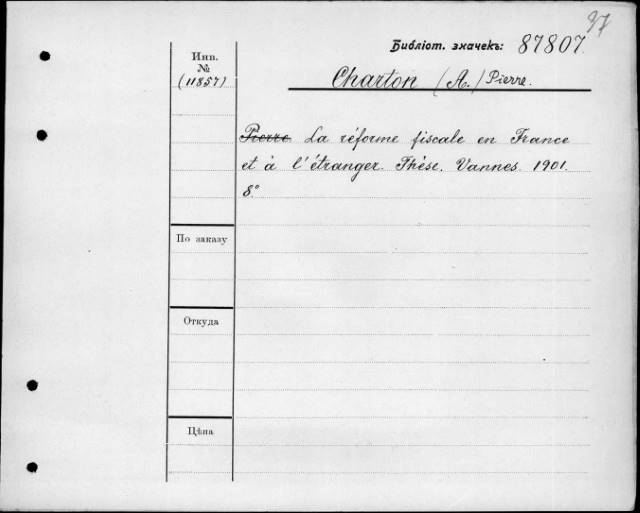 37
Библіот. значекъ: 87807.
Инв.
№
(11857)
Charton (A.) Pierre.
Pierre. La réforme fiscale en France
et à l'étranger. Thèse. Vannes. 1901.
8°
По заказу
Откуда
Цѣна